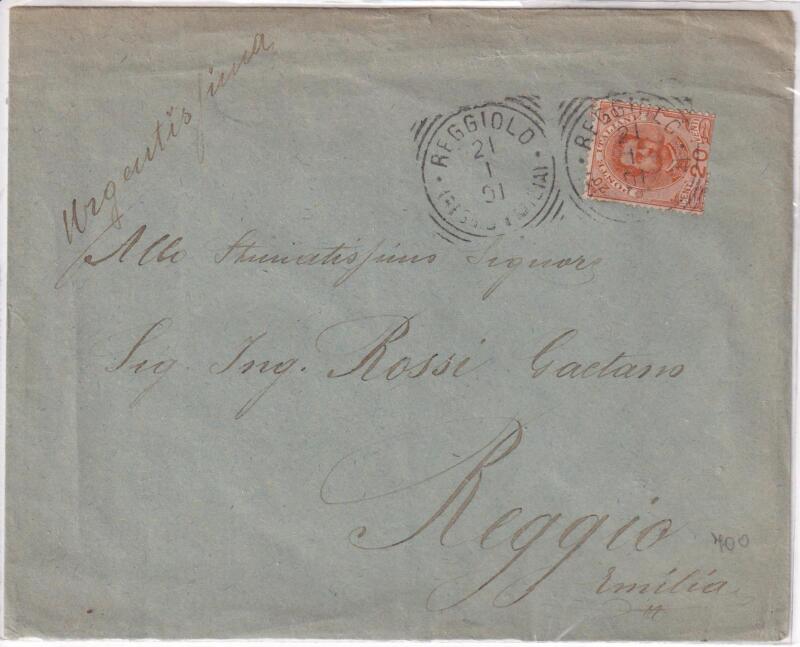 Urgentissima
REGGIOLO
21
1
01
(REGGIO EMILIA)
REGGIOLO
21
1
01
20
20
Allo Stimatissimo Signore
Sig. Ing. Rossi Gaetano
Reggio
Emilia
400